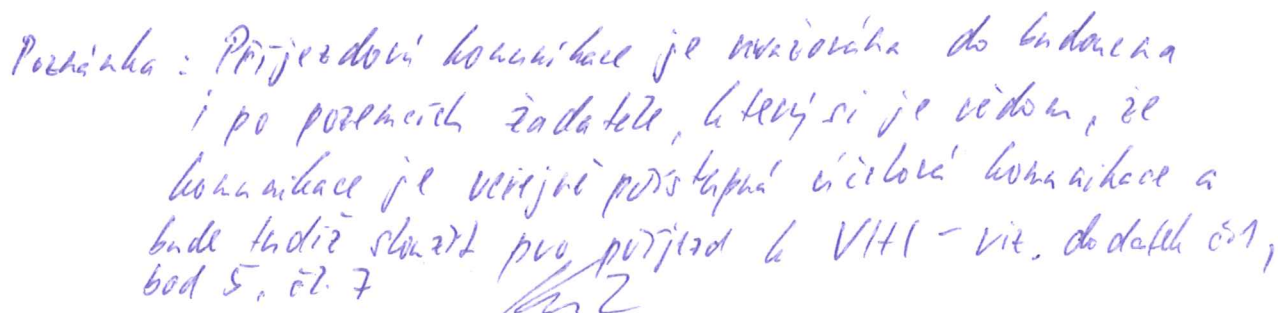 Poznámka : Příjezdová komunikace je uvažována do budoucna
i po pozemcích žadatele, který si je vědom, že
komunikace je veřejně přístupná účelová komunikace a
bude tudíž sloužit pro příjezd k VTH - viz. dodatek č. 1,
bod 5, čl. 7